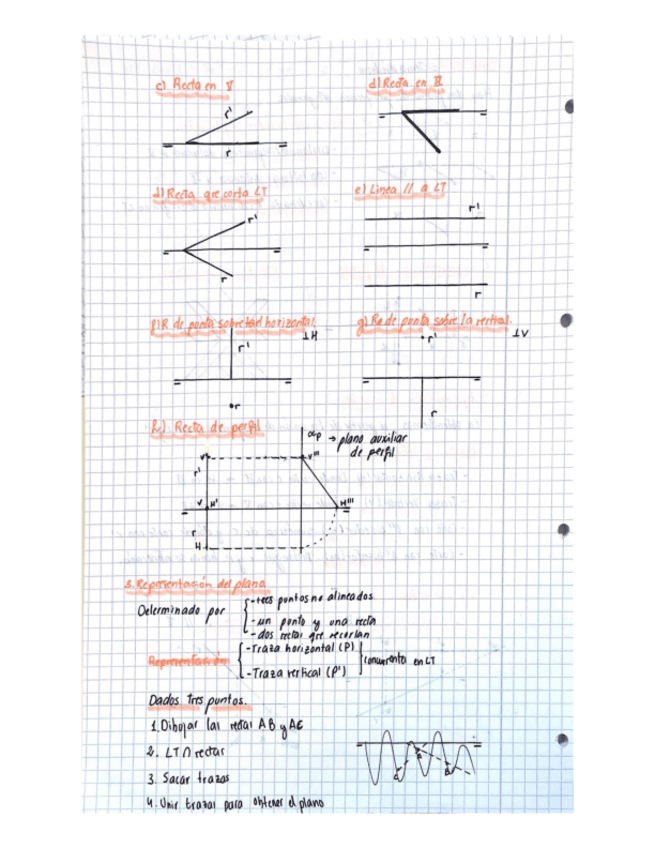 c) Recta en V
d) Recta en H
r'
r
d) Recta que corta LT
e) Linea // a LT
r'
r
r'
r
f) R de punta sobre
horizontal.
⊥H
g) Re de punta sobre la vertical.
⊥V
r'
r
r'
r
h) Recta de perfil
αp → plano auxiliar
de perfil
V'
V'''
r'
V
H'
H'''
r
H
3. Representación del plano
Determinado por
- tres puntos no alineados
- un punto y una recta
- dos rectas que
Representación
- Traza horizontal (P)
- Traza vertical (P')
en LT
Dados tres puntos.
1. Dibujar las rectas AB y AC
2. LT ∩ rectas
3. Sacar trazas
4. Unir trazas para obtener el plano